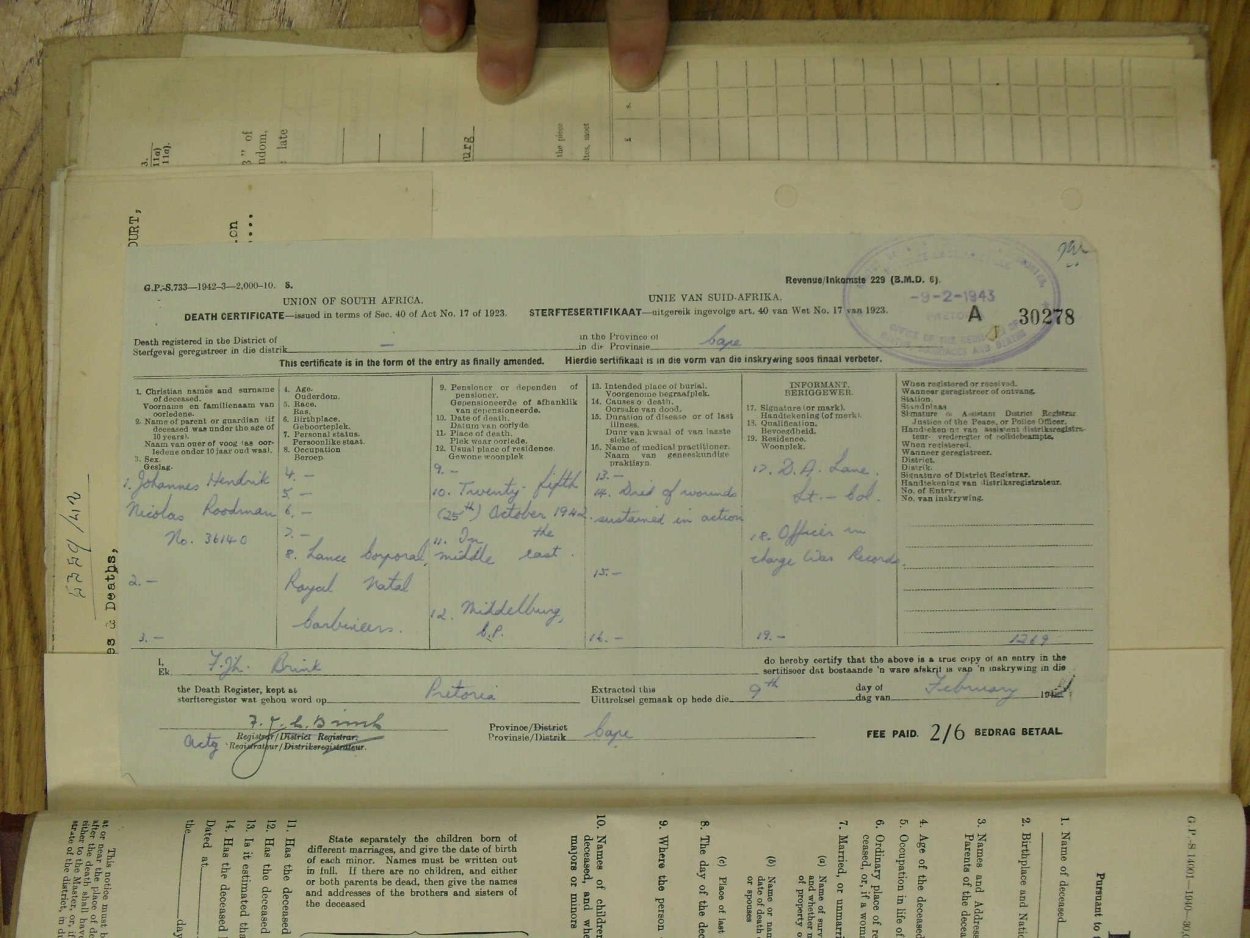 3.
11a)
11a).
3" of
ndom.
: late
urg
the piece
ites, most
OURT,
G.P.-S.733—1942-3—2,000-10. S.
Revenue/Inkomste 229 (B.M.D. 6).
UNION OF SOUTH AFRICA.
UNIE VAN SUID-AFRIKA.
-9-2-1943
A 30278
DEATH CERTIFICATE—issued in terms of Sec. 40 of Act No. 17 of 1923.
STERFTESERTIFIKAAT—uitgereik ingevolge art. 40 van Wet No. 17 van 1923.
Death registered in the District of
Sterfgeval geregistreer in die distrik —
in the Province of
in die Provinsie Cape
This certificate is in the form of the entry as finally amended. Hierdie sertifikaat is in die vorm van die inskrywing soos finaal verbeter.
1. Christian names and surname
of deceased.
Voorname en familienaam van
oorledene.
2. Name of parent or guardian (if
deceased was under the age of
10 years).
Naam van ouer of voog (as oor-
ledene onder 10 jaar oud was).
3. Sex.
Geslag.
1. Johannes Hendrik
Nicolas Roodman
No. 36140
2. —
3. —
4. Age.
Ouderdom.
5. Race.
Ras.
6. Birthplace.
Geboorteplek.
7. Personal status.
Persoonlike staat.
8. Occupation
Beroep.
4. —
5 —
6. —
7. —
8. Lance Corporal,
Royal Natal
Carbineers.
9. Pensioner or dependen of
pensioner.
Gepensioneerde of afhanklik
van gepensioneerde.
10. Date of death.
Datum van oorlyde.
11. Place of death.
Plek waar oorlede.
12. Usual place of residence.
Gewone woonplek
9. —
10. Twenty-fifth
(25th) October 1942.
11. In the
middle east.
12. Middelburg,
C.P.
13. Intended place of burial.
Voorgenome begraafplek.
14. Causes o death.
Oorsake van dood.
15. Duration of disease or of last
illness.
Duur van kwaal of van laaste
siekte.
16. Name of medical practitioner.
Naam van geneeskundige
praktisyn.
13. —
14. Died of wounds
sustained in action
15. —
16. —
INFORMANT.
BERIGGEWER.
17. Signature (or mark).
Handtekening (of merk).
18. Qualification.
Bevoegdheid.
19. Residence.
Woonplek.
17. D.A. Lane.
Lt. - Col.
18. Officer in
charge War Records.
19. —
When registered or received.
Wanneer geregistreer of ontvang.
Station.
Standplaas
Signature o Assistant District Registrar
Justice of the Peace, or Police Officer.
When registered.
Wanneer geregistreer.
District.
Distrik.
Signature of District Registrar.
Handtekening van distriksregistrateur.
No. of Entry.
No. van inskrywing.
1269
I,
Ek F. Jh. Brink
do hereby certify that the above is a true copy of an entry in the
sertifiseer dat bostaande 'n ware afskrif is van 'n inskrywing in die
the Death Register, kept at
sterfteregister wat gehou word op Pretoria
Extracted this
Uittreksel gemaak op hede die 9th
day of
dag van February 194
Actg Registrar/District Registrar.
Registrateur/Distriksregistrateur.
Province/District
Provinsie/Distrik Cape
FEE PAID. 2/6 BEDRAG BETAAL.
es & Deaths,
This notice must b
at or near the place of de
after the death shall hav
either to the Master, or, if
strate of the district, in du
the day
Dated at
14. Has the deceased
13. Is it estimated tha
12. Has the deceased
11. Has the deceased
State separately the children born of
different marriages, and give the date of birth
of each minor. Names must be written out
in full. If there are no children, and either
or both parents be dead, then give the names
and addresses of the brothers and sisters of
the deceased
10. Names of children
deceased, and whe
majors or minors
9. Where the person
8. The day of the dec
(c) Place of last
(b) Name or nan
date of death
or spouses
(a) Name of surv
and whether m
of property o
7. Married, or unmarri
6. Ordinary place of re
ceased, or, if a wom
5. Occupation in life of
4. Age of the deceased
3. Names and Address
Parents of the decea
2. Birthplace and Natio
1. Name of deceased
Pursuant to